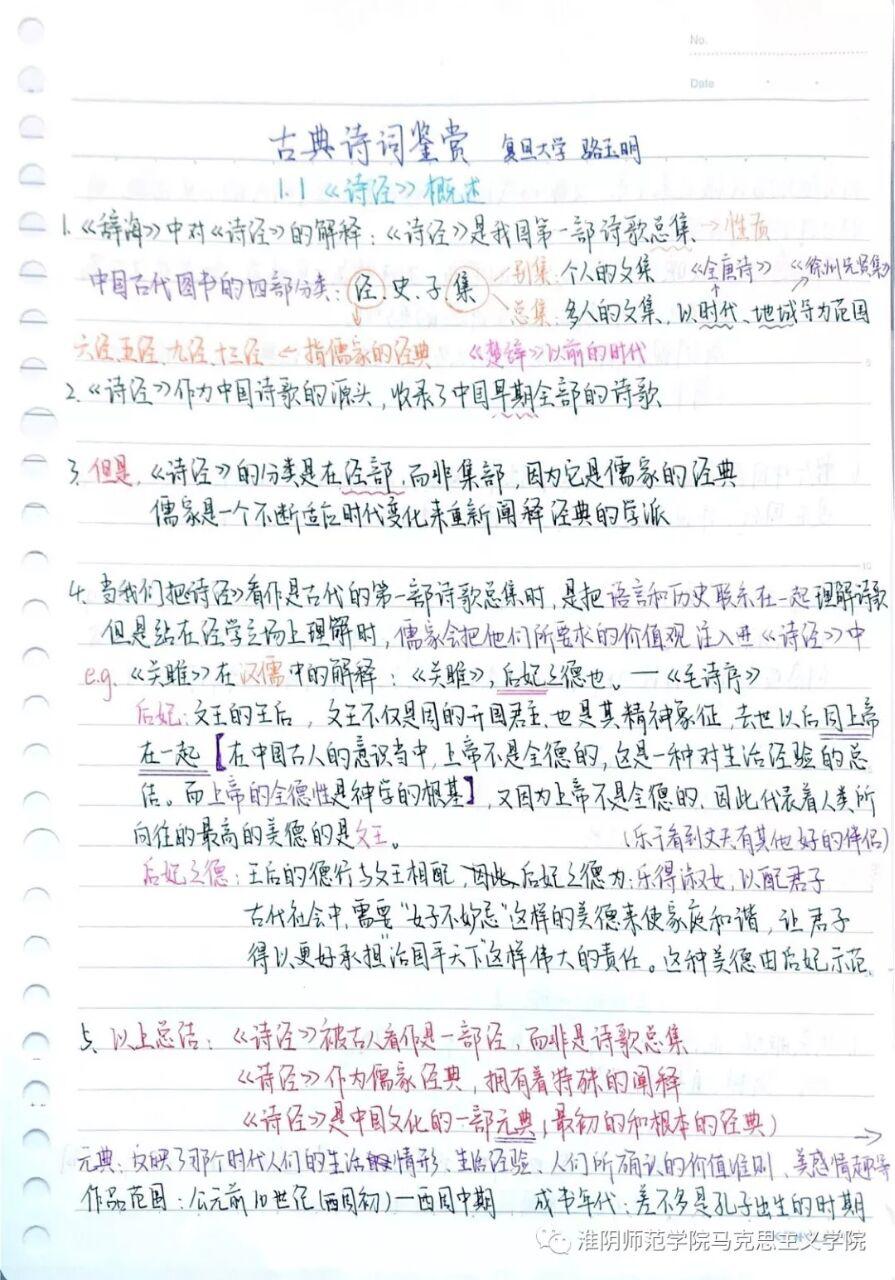 No.
Date
古典诗词鉴赏 复旦大学 骆玉明
1.1《诗经》概述
1.《辞海》中对《诗经》的解释：《诗经》是我国第一部诗歌总集→性质
别集：个人的文集 《全唐诗》 《徐州先贤集》
中国古代图书的四部分类：经、史、子、集
总集：多人的文集，以时代、地域等为范围
六经、五经、九经、十三经←指儒家的经典 《楚辞》以前的时代
2.《诗经》作为中国诗歌的源头，收录了中国早期全部的诗歌
3.但是，《诗经》的分类是在经部，而非集部，因为它是儒家的经典
儒家是一个不断适应时代变化来重新阐释经典的学派
4.当我们把《诗经》看作是古代的第一部诗歌总集时，是把语言和历史联系在一起理解诗歌
但是站在经学立场上理解时，儒家会把他们所要求的价值观注入进《诗经》中
e.g.《关雎》在汉儒中的解释：《关雎》，后妃之德也。—《毛诗序》
后妃：文王的王后，文王不仅是周的开国君主，也是其精神象征，去世以后同上帝
在一起【在中国古人的意识当中，上帝不是全德的，这是一种对生活经验的总
结。而上帝的全德性是神学的根基】，又因为上帝不是全德的，因此代表着人类所
向往的最高的美德的是文王。 （乐于看到丈夫有其他好的伴侣）
后妃之德：王后的德行与文王相配，因此后妃之德为：乐得淑女，以配君子
古代社会中，需要“女子不妒忌”这样的美德来使家庭和谐，让君子
得以更好承担“治国平天下”这样伟大的责任。这种美德由后妃示范。
5.以上总结：《诗经》被古人看作是一部经，而非是诗歌总集
《诗经》作为儒家经典，拥有着特殊的阐释
《诗经》是中国文化的一部元典（最初的和根本的经典）
→
元典：反映了那个时代人们的生活情形、生活经验、人们所确认的价值准则、美感情趣等
作品范围：公元前10世纪（西周初）—西周中期 成书年代：差不多是孔子出生的时期
淮阴师范学院马克思主义学院